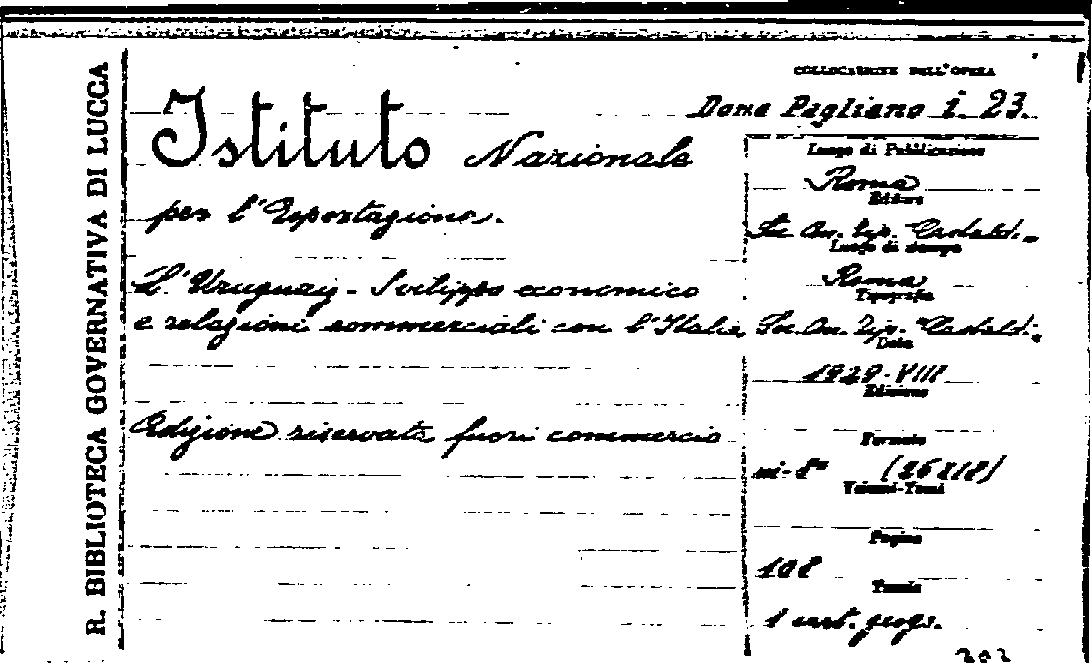 R. BIBLIOTECA GOVERNATIVA DI LUCCA
COLLOCAZIONE DELL'OPERA
Dono Pagliano i. 23.
Istituto Nazionale
per l'Esportazione.
L'Uruguay - Sviluppo economico
e relazioni commerciali con l'Italia
Edizione riservata fuori commercio
Luogo di Pubblicazione
Roma
Editore
Soc. An. Tip. Castaldi.
Luogo di stampa
Roma
Tipografia
Soc. An. Tip. Castaldi.
Data
1929-VIII
Edizione
Formato
in-8º (26x18)
Volumi-Tomi
Pagine
108
Tavole
1 cart. geogr.